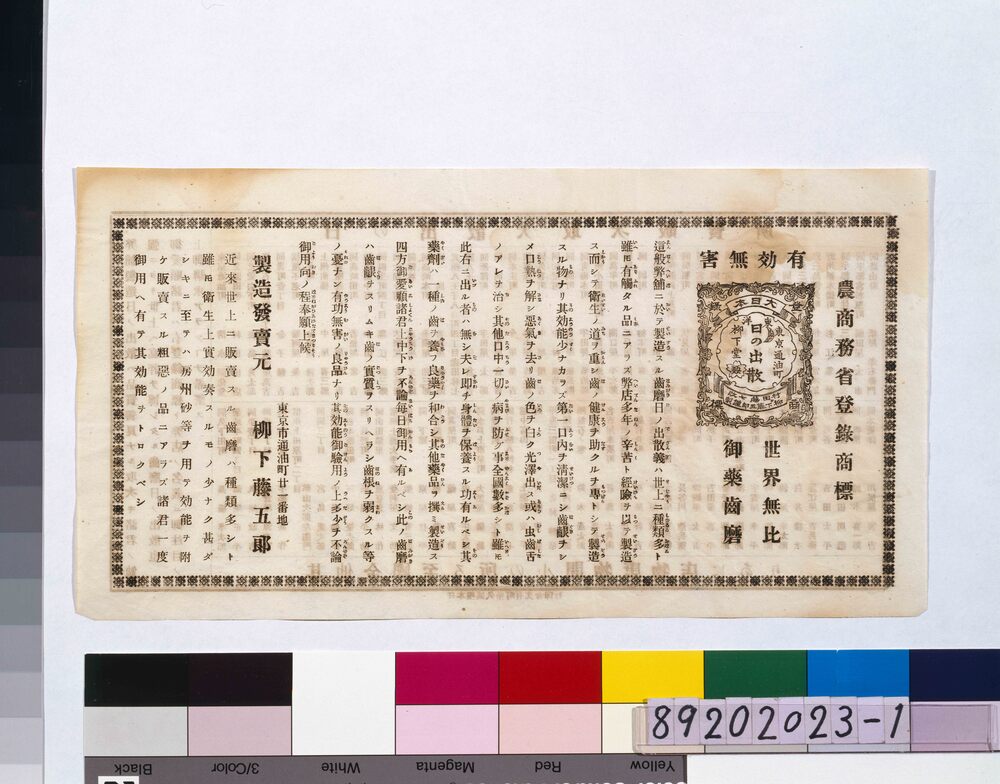 農商務省登錄商標
有効無害
大日本
東京通油町
日の出散
柳下堂
世界無比
御藥齒磨
這般弊舗ニ於テ製造スル齒磨日ノ出散義ハ世上ニ種類多ト
雖モ有觸タル品ニアラズ弊店多年ノ辛苦ト經驗ヲ以テ製造
ス而シテ衛生ノ道ヲ重シ齒ノ健康ヲ助クルヲ專トシテ製造
スル物ナリ其効能少ナカラズ第一口内ヲ清潔ニシ齒齦ヲシ
メ口熱ヲ解シ惡氣ヲ去リ齒ノ色ヲ白ク光澤出ス或ハ虫齒舌
ノアレヲ治シ其他口中一切ノ病ヲ防グ事全國數多シト雖モ
此右ニ出ル者ハ無シ夫レ即チ身體ヲ保養スル功有ルベシ其
藥劑ハ一種ノ齒ヲ養フ良藥ヲ和合シ其他藥品ヲ撰ミ製造ス
四方御愛顧諸君上中下ヲ不論毎日御用ヘ有ルベシ此ノ齒磨
ハ齒齦ヲスリムキ齒ノ實質ヲスリヘラシ齒根ヲ弱クスル等
ノ憂ナシ有功無害ノ良品ナリ其効能御驗用ノ上多少ヲ不論
御用向ノ程奉願上候
東京市通油町廿一番地
製造發賣元 柳下藤五郎
近來世上ニ販賣スル齒磨ハ種類多シト
雖モ衛生上實効奏スルモノ少ナク甚ダ
シキニ至テハ房州砂等ヲ用テ効能ヲ附
ケ販賣スル粗惡ノ品ニアラズ諸君一度
御用ヘ有テ其効能ヲトロクベシ
89202023-1
Black
3/Color
White
Magenta
Red
Yellow